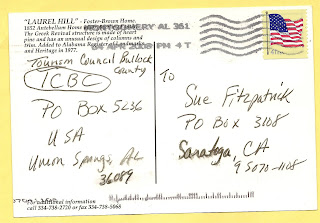 "LAUREL HILL" - Foster-Brown Home.
1852 Antebellum Home
The Greek Revival structure is made of heart
pine and has an unusual design of columns and
trim. Added to Alabama Register of Landmarks
and Heritage in 1977.
MONTGOMERY AL 361
04 APR 2008 PM 4 T
Tourism Council Bullock
County
TCBC
PO Box 5236
USA
Union Springs, AL
36089
For additional information
call 334-738-2720 or fax 334-738-5068
To
Sue Fitzpatrick
PO Box 3108
Saratoga, CA
95070-1108